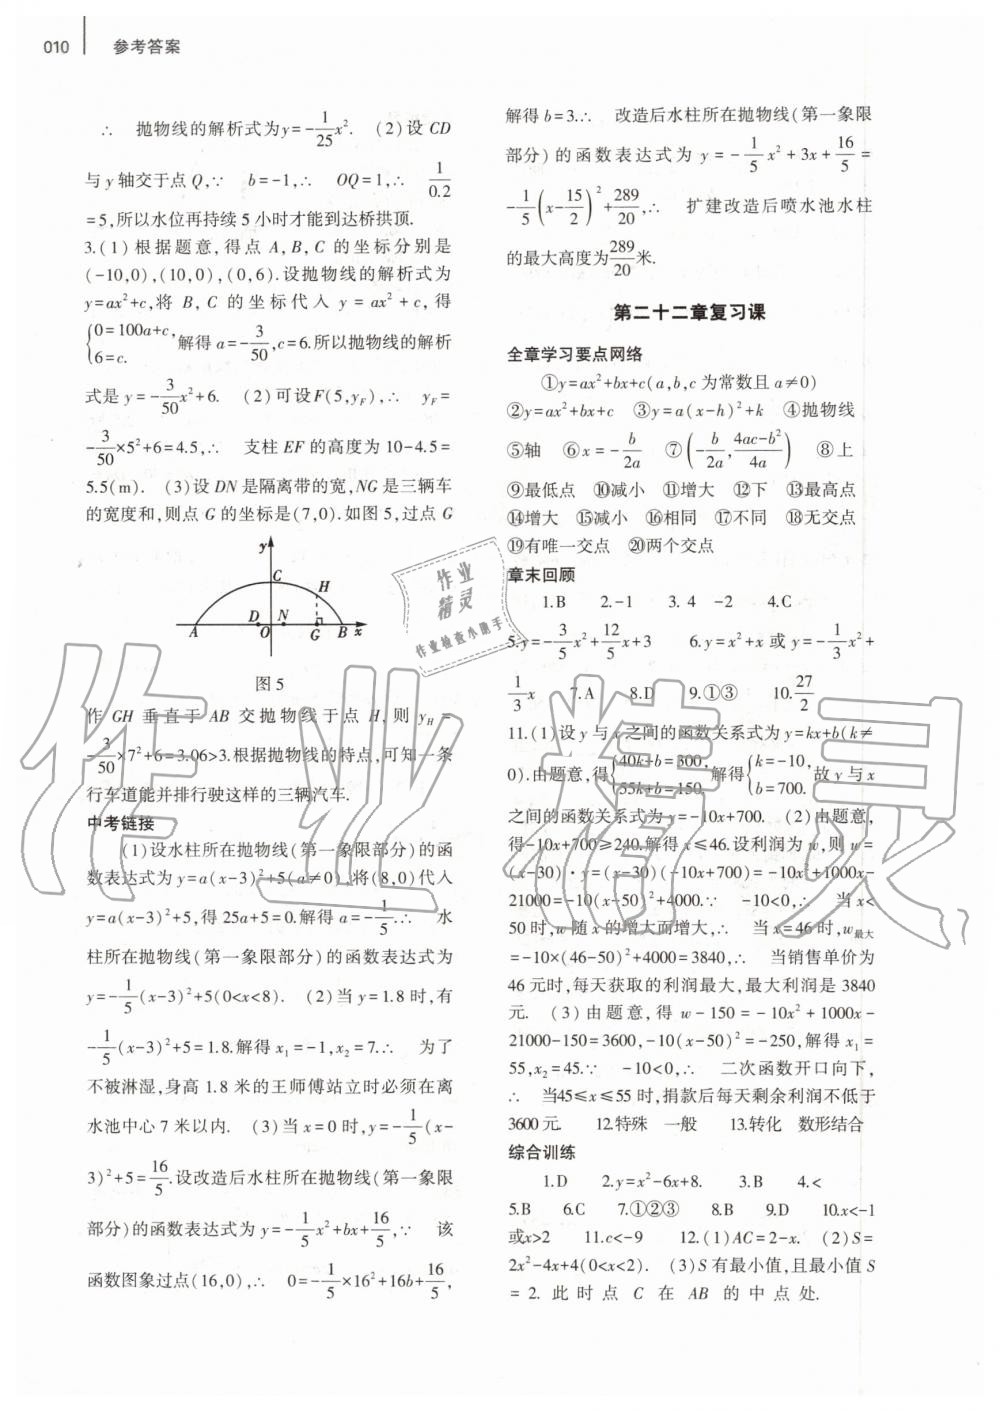 010 参考答案
∴ 抛物线的解析式为y=-1/25x². (2)设 CD
与 y 轴交于点 Q,∵ b=-1,∴ OQ=1,∴ 1/0.2
=5,所以水位再持续 5 小时才能到达桥拱顶.
3.(1)根据题意,得点 A,B,C 的坐标分别是
(-10,0),(10,0),(0,6).设抛物线的解析式为
y=ax²+c,将 B, C 的坐标代入 y = ax² + c, 得
{0=100a+c, 6=c. 解得 a=-3/50,c=6.所以抛物线的解析
式是 y=-3/50x²+6. (2)可设F(5,y_F),∴ y_F=
-3/50×5²+6=4.5,∴ 支柱 EF 的高度为 10-4.5=
5.5(m). (3)设 DN 是隔离带的宽,NG 是三辆车
的宽度和,则点 G 的坐标是(7,0).如图 5,过点 G
y
C
H
D
N
A
O
G
B
x
图 5
作 GH 垂直于 AB 交抛物线于点 H,则 y_H =
-3/50×7²+6=3.06>3.根据抛物线的特点,可知一条
行车道能并排行驶这样的三辆汽车.
中考链接
(1)设水柱所在抛物线(第一象限部分)的函
数表达式为 y=a(x-3)²+5(a≠0),将(8,0)代入
y=a(x-3)²+5,得 25a+5=0.解得 a=-1/5.∴ 水
柱所在抛物线(第一象限部分)的函数表达式为
y=-1/5(x-3)²+5(0<x<8). (2)当 y=1.8 时,有
-1/5(x-3)²+5=1.8.解得 x₁=-1,x₂=7.∴ 为了
不被淋湿,身高 1.8 米的王师傅站立时必须在离
水池中心 7 米以内. (3)当 x=0 时,y=-1/5(x-
3)²+5=16/5.设改造后水柱所在抛物线(第一象限
部分)的函数表达式为 y=-1/5x²+bx+16/5,∵ 该
函数图象过点(16,0),∴ 0=-1/5×16²+16b+16/5,
解得 b=3.∴ 改造后水柱所在抛物线(第一象限
部分)的函数表达式为 y=-1/5x²+3x+16/5=
-1/5(x-15/2)²+289/20,∴ 扩建改造后喷水池水柱
的最大高度为289/20米.
第二十二章复习课
全章学习要点网络
①y=ax²+bx+c(a,b,c 为常数且 a≠0)
②y=ax²+bx+c ③y=a(x-h)²+k ④抛物线
⑤轴 ⑥x=-b/2a ⑦(-b/2a,4ac-b²/4a) ⑧上
⑨最低点 ⑩减小 ⑪增大 ⑫下 ⑬最高点
⑭增大 ⑮减小 ⑯相同 ⑰不同 ⑱无交点
⑲有唯一交点 ⑳两个交点
章末回顾
1.B 2.-1 3. 4 -2 4.C
5.y=-3/5x²+12/5x+3 6.y=x²+x 或 y=-1/3x²+
1/3x 7.A 8.D 9.①③ 10.27/2
11.(1)设 y 与 x 之间的函数关系式为 y=kx+b(k≠
0).由题意,得{40k+b=300, 55k+b=150, 解得{k=-10, b=700. 故 y 与 x
之间的函数关系式为 y=-10x+700. (2)由题意,
得-10x+700≥240.解得 x≤46.设利润为 w,则 w=
(x-30)·y=(x-30)(-10x+700)=-10x²+1000x-
21000=-10(x-50)²+4000.∵ -10<0,∴ 当 x<
50 时,w 随 x 的增大而增大,∴ 当 x=46 时,w最大
=-10×(46-50)²+4000=3840,∴ 当销售单价为
46 元时,每天获取的利润最大,最大利润是 3840
元. (3)由题意,得 w-150=-10x²+1000x-
21000-150=3600,-10(x-50)²=-250,解得 x₁=
55,x₂=45.∵ -10<0,∴ 二次函数开口向下,
∴ 当45≤x≤55 时,捐款后每天剩余利润不低于
3600元. 12.特殊 一般 13.转化 数形结合
综合训练
1.D 2.y=x²-6x+8. 3.B 4.<
5.B 6.C 7.①②③ 8.B 9.D 10.x<-1
或x>2 11.c<-9 12.(1)AC=2-x. (2)S=
2x²-4x+4(0<x<2). (3)S 有最小值,且最小值 S
= 2. 此时点 C 在 AB 的中点处.
作业精灵
作业
精灵
作业检查小助手